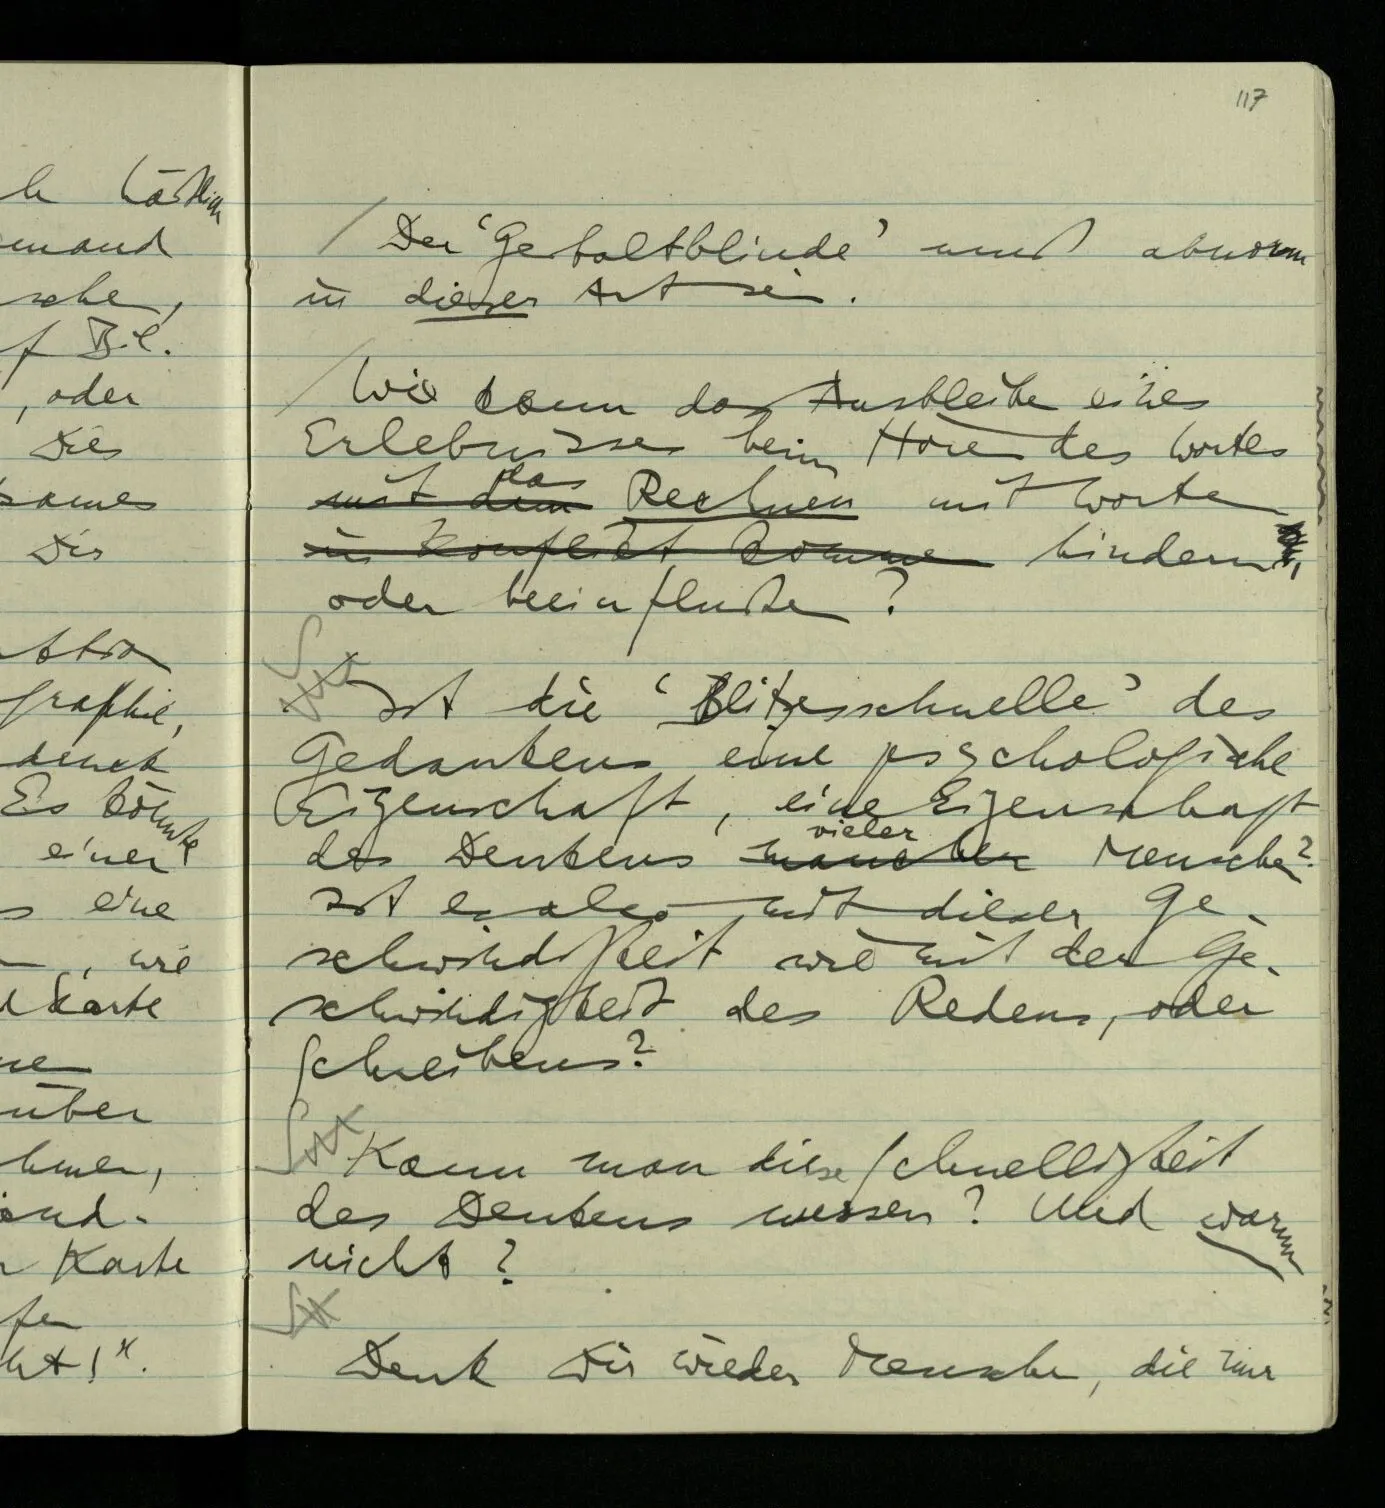 117
/ Der ‘Gestaltblinde’ muß abnorm
in dieser Art sein.
/ Wie kann das Ausbleiben eines
Erlebnisses beim Hören des Wortes
mit dem das Rechnen mit Worten
in Konflikt kommen hindern,
oder beeinflußen?
Ist die ‘Blitzesschnelle’ des
Gedankens eine psychologische
Eigenschaft, eine Eigenschaft
des Denkens mancher vieler Menschen?
Ist es also mit dieser Ge-
schwindigkeit wie mit der Ge-
schwindigkeit des Redens, oder
Schreibens?
Kann man diese Schnelligkeit
des Denkens messen? Und warum
nicht?
Denk Dir wieder Menschen, die nur
mand
sche,
, oder
Dies
sames
Dir
graphie,
Es könnte
einer
eine
, wie
Karte
über
hmen,
Karte